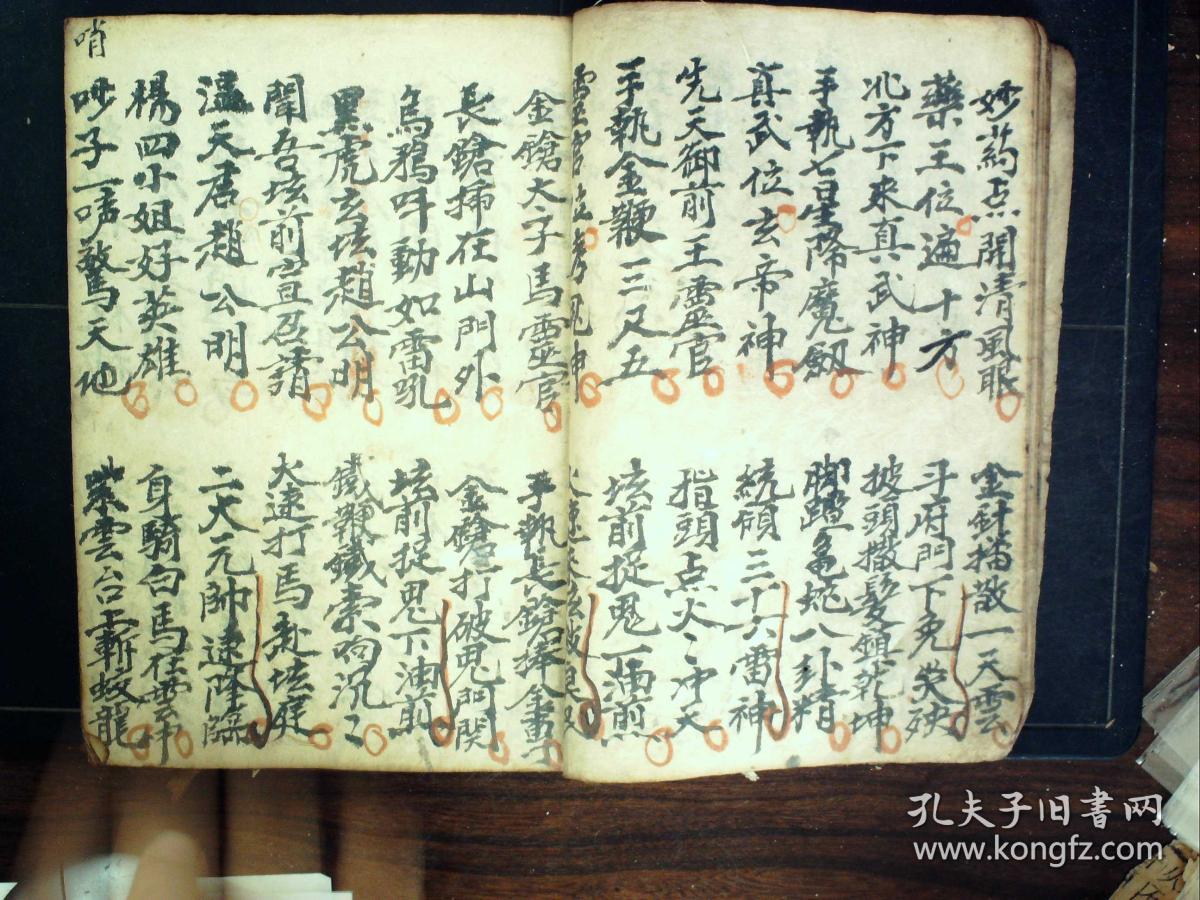 妙葯点開清風眼
金針播散一天雲
藥王位遍十方
斗府門下免災殃
北方下来真武神
披頭撒髮鎮乾坤
手執七星降魔劔
脚踏龜蛇八卦精
真武位玄帝神
統領三十六雷神
先天御前王靈官
指頭点火〻冲天
手執金鞭三又五
坛前捉鬼一油煎
靈官
金鎗太子馬靈官
手執長鎗捧金
長鎗掃在山門外
金鎗打破鬼門関
烏鴉呌動如雷吼
坛前捉鬼下油煎
黑虎玄坛趙公明
鐵鞭鐵索响沉〻
聞吾坛前宣召請
火速打馬赴坛庭
温天君趙公明
二大元帥速降臨
楊四小姐好英雄
身騎白馬在雲
哨
吵子一声驚天地
紫雲台上斬蛟龍
孔夫子旧書网
www.kongfz.com